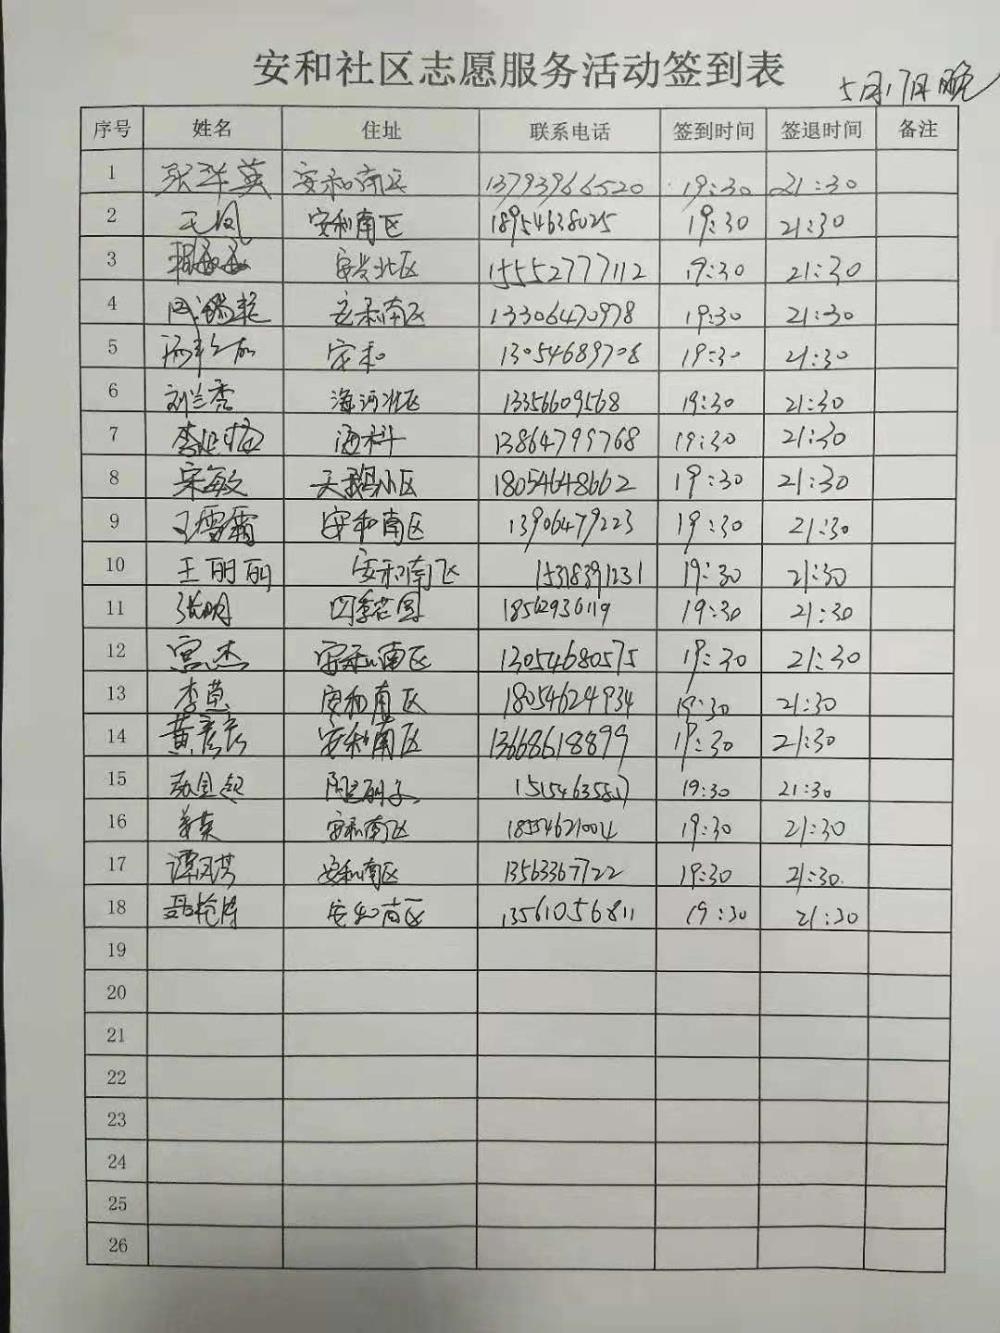 安和社区志愿服务活动签到表
5月17日晚
序号 姓名 住址 联系电话 签到时间 签退时间 备注
1 张华英 安和南区 13793966520 19:30 21:30
2 王凤 安和南区 18954638025 19:30 21:30
3 安兴北区 15552777112 19:30 21:30
4 安和南区 13306470978 19:30 21:30
5 安和 13054689708 19:30 21:30
6 刘兰秀 海河北区 13356609568 19:30 21:30
7 海科 13864799768 19:30 21:30
8 宋敏 天鹅小区 18054648662 19:30 21:30
9 王雪霜 安和南区 13906479223 19:30 21:30
10 王丽丽 安和南区 15318391231 19:30 21:30
11 张明 四季花园 18562936119 19:30 21:30
12 宫杰 安和南区 13054680575 19:30 21:30
13 李萱 安和南区 18054624934 19:30 21:30
14 黄彦兵 安和南区 13668618899 19:30 21:30
15 19:30 21:30
16 姜英 安和南区 18554621004 19:30 21:30
17 谭凤芹 安和南区 13563367722 19:30 21:30
18 安和南区 13561056811 19:30 21:30
19
20
21
22
23
24
25
26